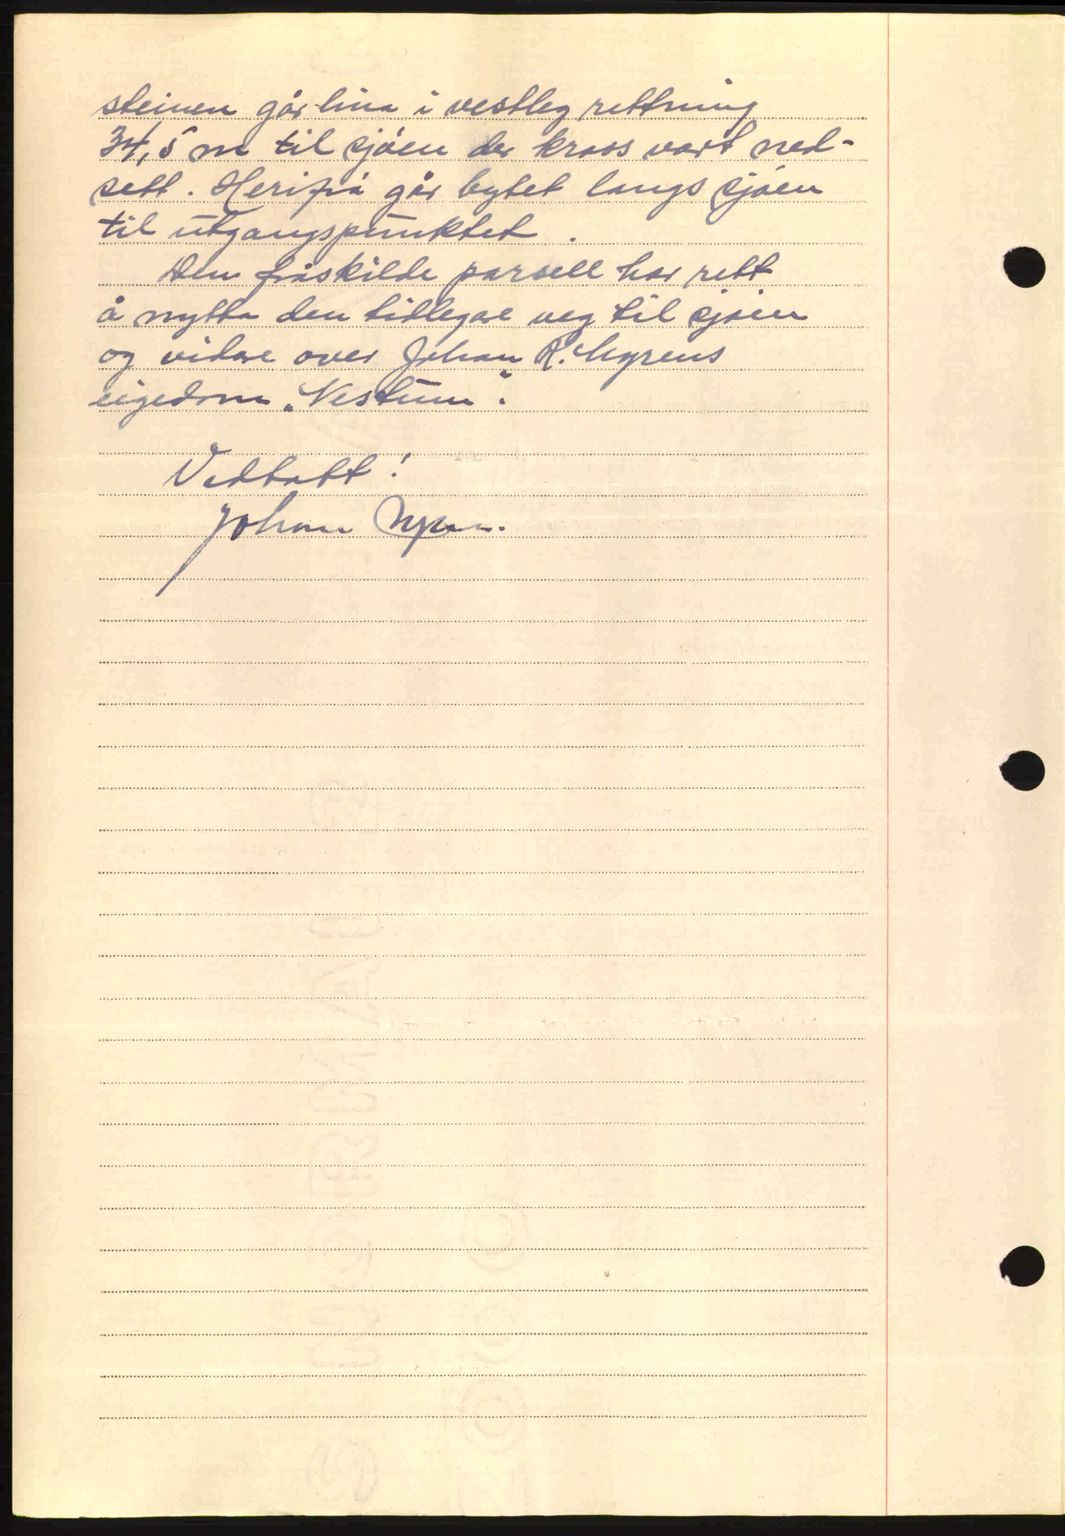 steinen går lina i vestleg rettning
34,5 m til sjøen der kross vart ned-
sett. Herifrå går bytet langs sjøen
til utgangspunktet.
Den fråskilde parsell har rett
å nytta den tidlegare veg til sjøen
og vidare over Johan R. Myrens
eigedom „Vestum".
Vedtatt!
Johan Myren.